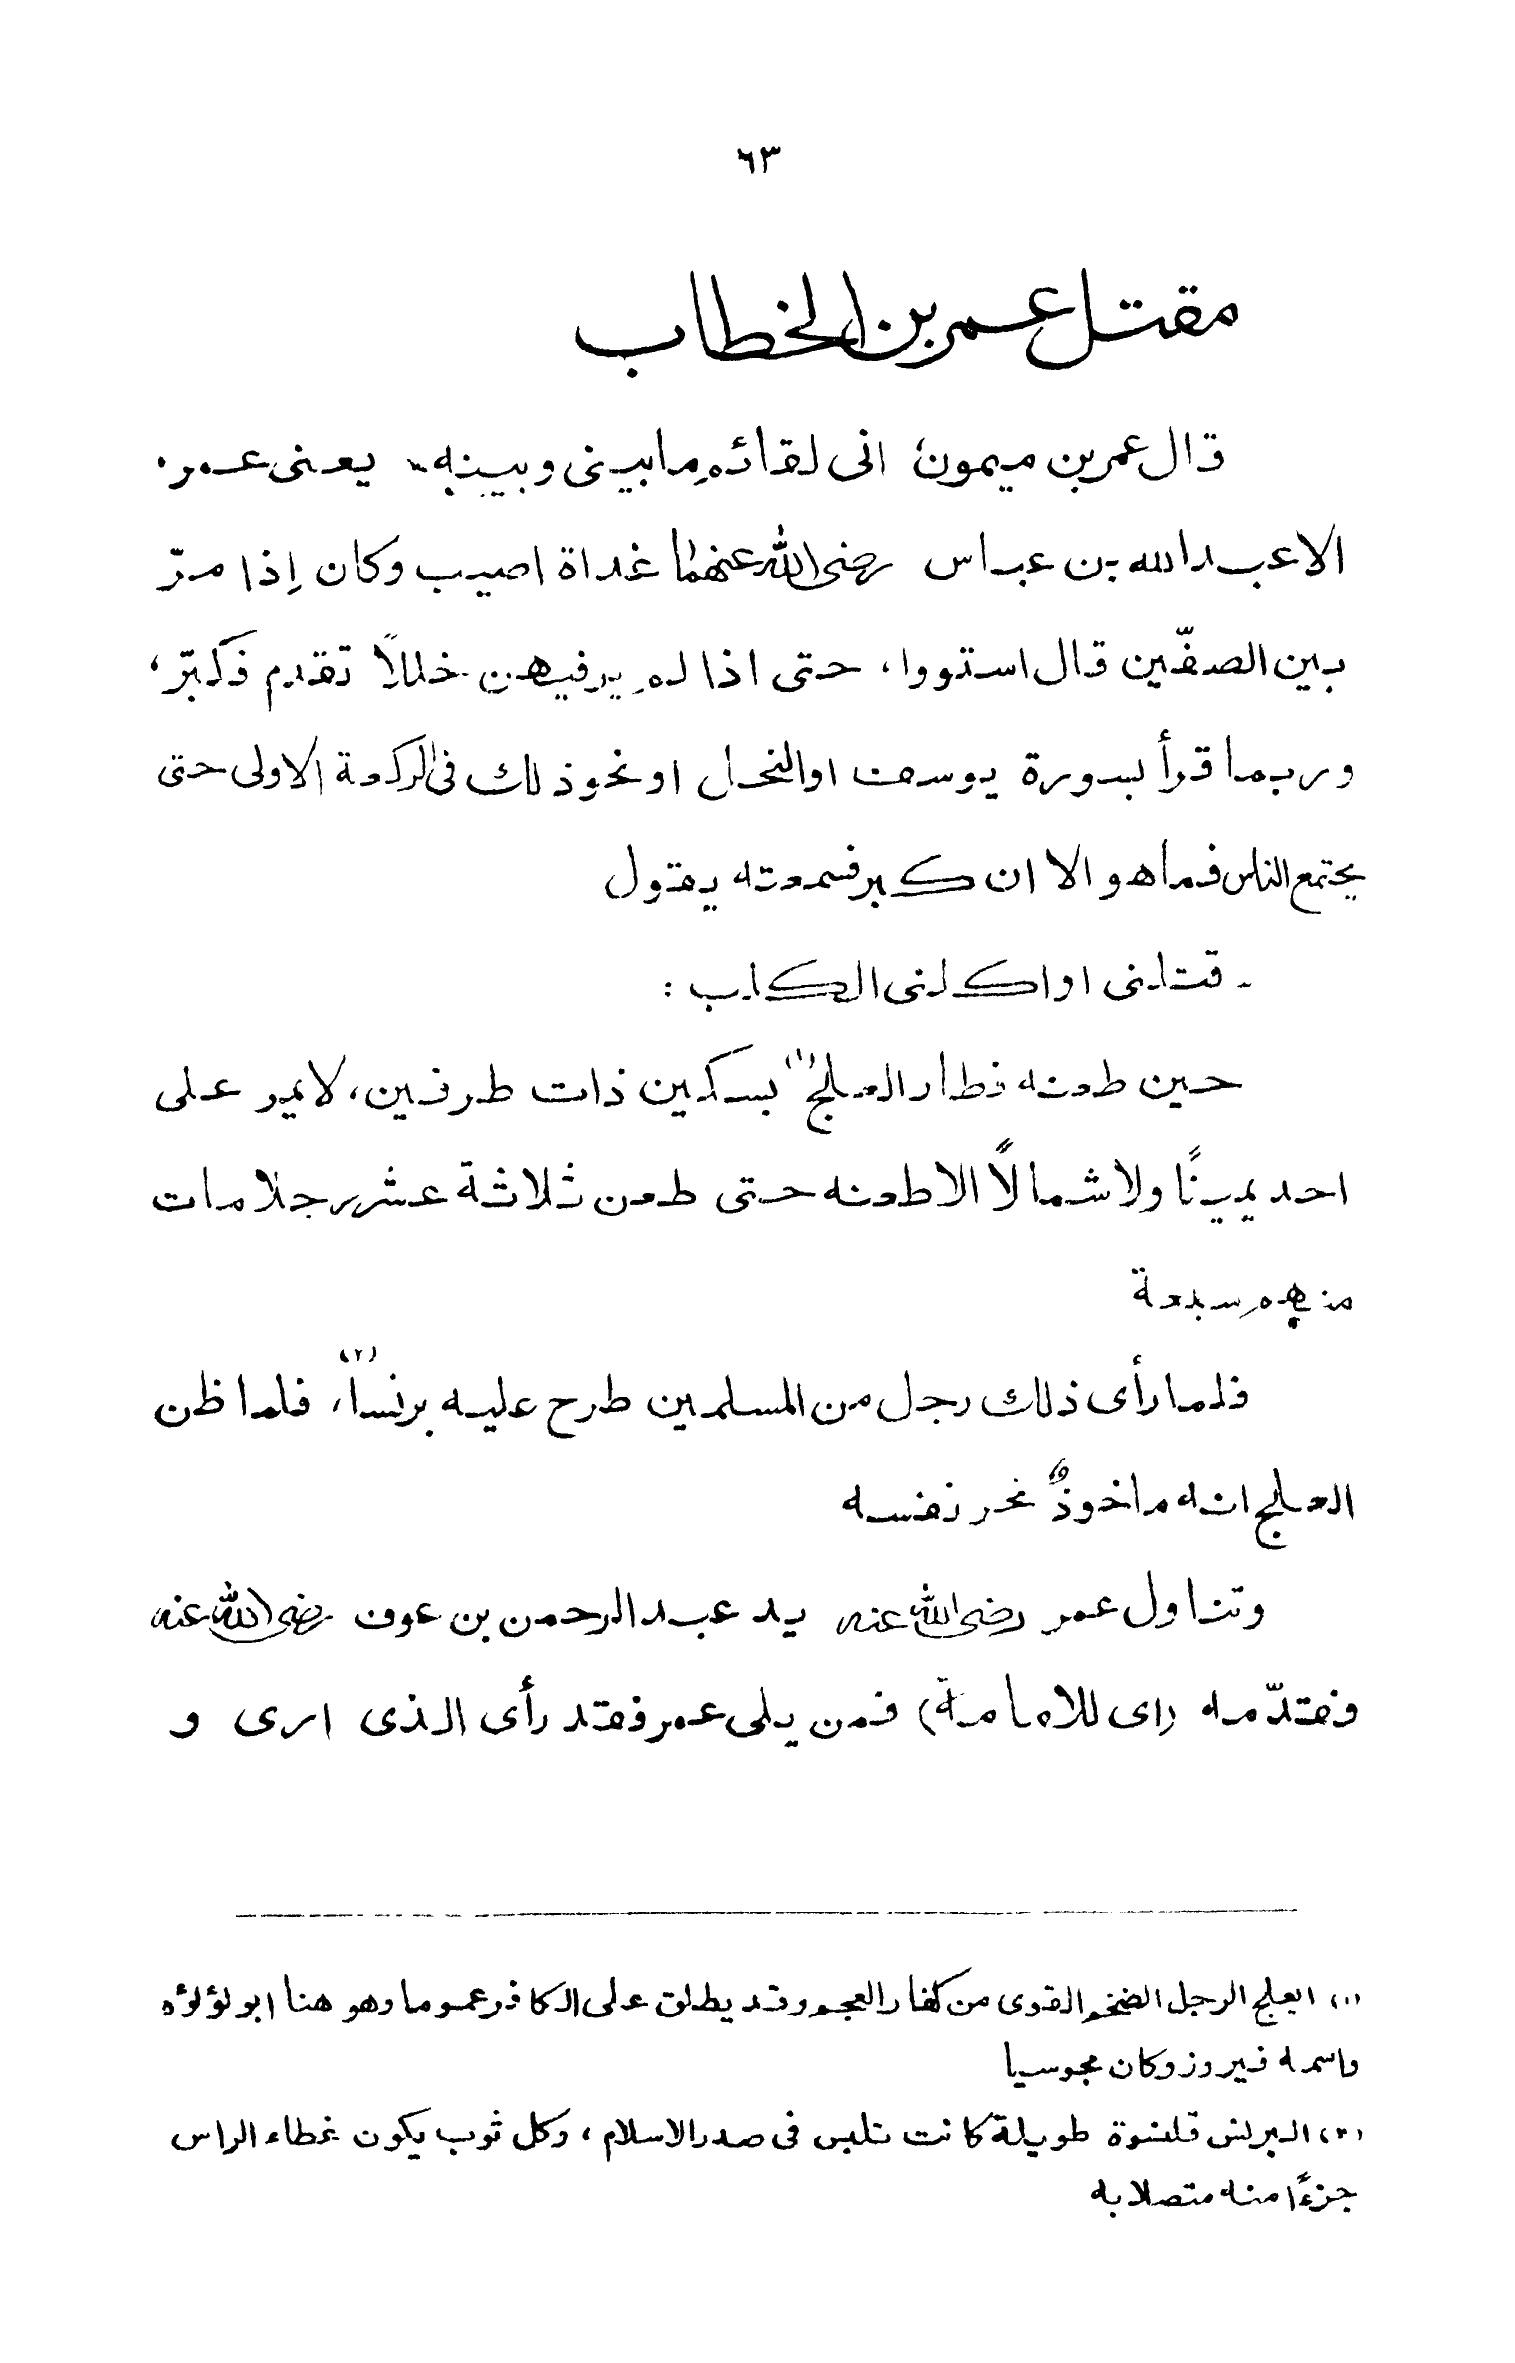 ٦٣
مقتل عمر بن الخطاب
قال عمر بن ميمون؛ انى لقائم ما بينى وبينه - يعنى عمر .
الا عبد الله بن عباس رضى الله عنهما غداة اصيب وكان إذا مرّ
بين الصفّين قال استووا، حتى اذا لم ير فيهن خللاً تقدم فكبّر،
وربما قرأ بسورة يوسف او النحل او نحو ذلك فى الركعة الاولى حتى
يجتمع الناس فما هو الا ان كبر فسمعته يقول
- قتلنى او اكلنى الكلب :
حين طعنه فطار العلج (١) بسكين ذات طرفين، لا يمر على
احد يمينًا ولا شمالاً الا طعنه حتى طعن ثلاثة عشر رجلا مات
منهم سبعة
فلما رأى ذلك رجل من المسلمين طرح عليه برنسا (٢)، فلما ظن
العلج انه ماخوذٌ نحر نفسه
وتناول عمر رضى الله عنه يد عبد الرحمن بن عوف رضى الله عنه
فقدّمه (اى للامامة) فمن يلى عمر فقد رأى الذى ارى و
(١) العلج الرجل الضخم القوى من كفار العجم وقد يطلق على الكافر عموما وهو هنا ابو لؤلؤه
واسمه فيروز وكان مجوسيا
(٢) البرنس قلنسوة طويلة كانت تلبس فى صدر الاسلام ، وكل ثوب يكون غطاء الراس
جزءًا منه متصلا به